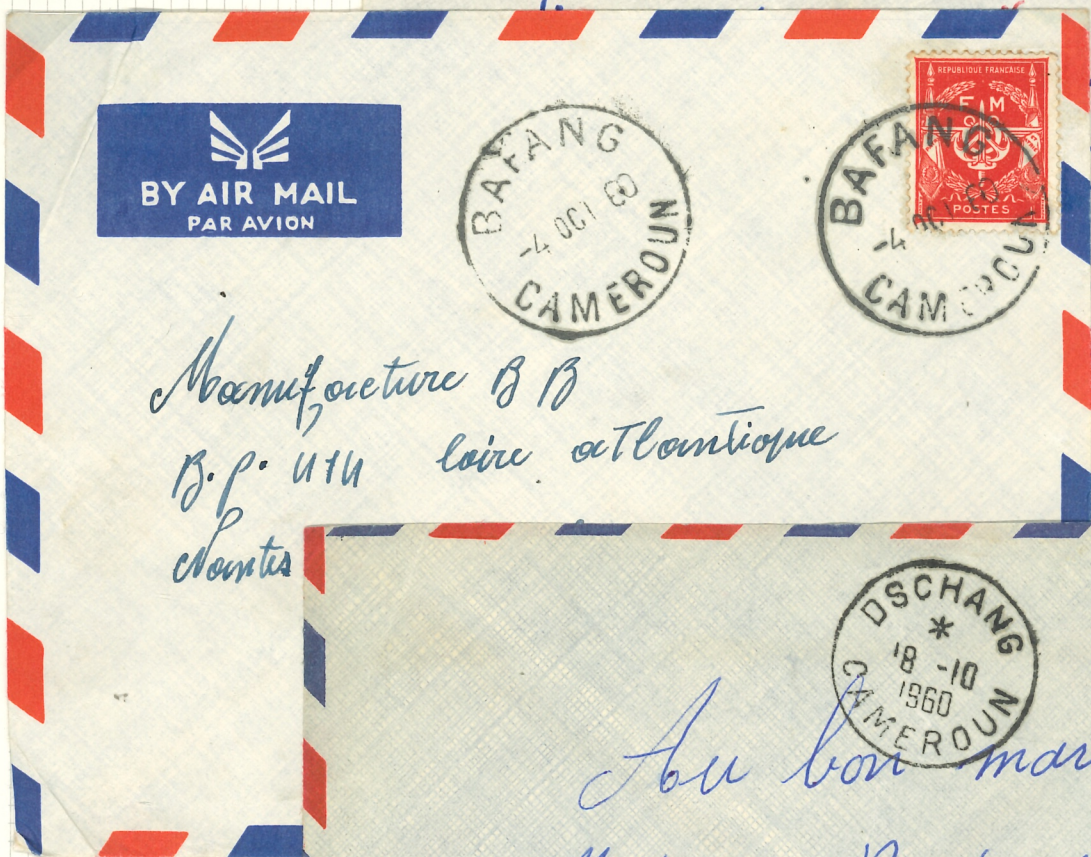 BY AIR MAIL
PAR AVION
BAFANG
-4 OCT 60
CAMEROUN
REPUBLIQUE FRANCAISE
F M
POSTES
BAFANG
-4 OCT 60
CAMEROUN
Manufacture B B
B.P. 414 loire atlantique
Nantes
DSCHANG
*
18 -10
1960
CAMEROUN
Au bon mar